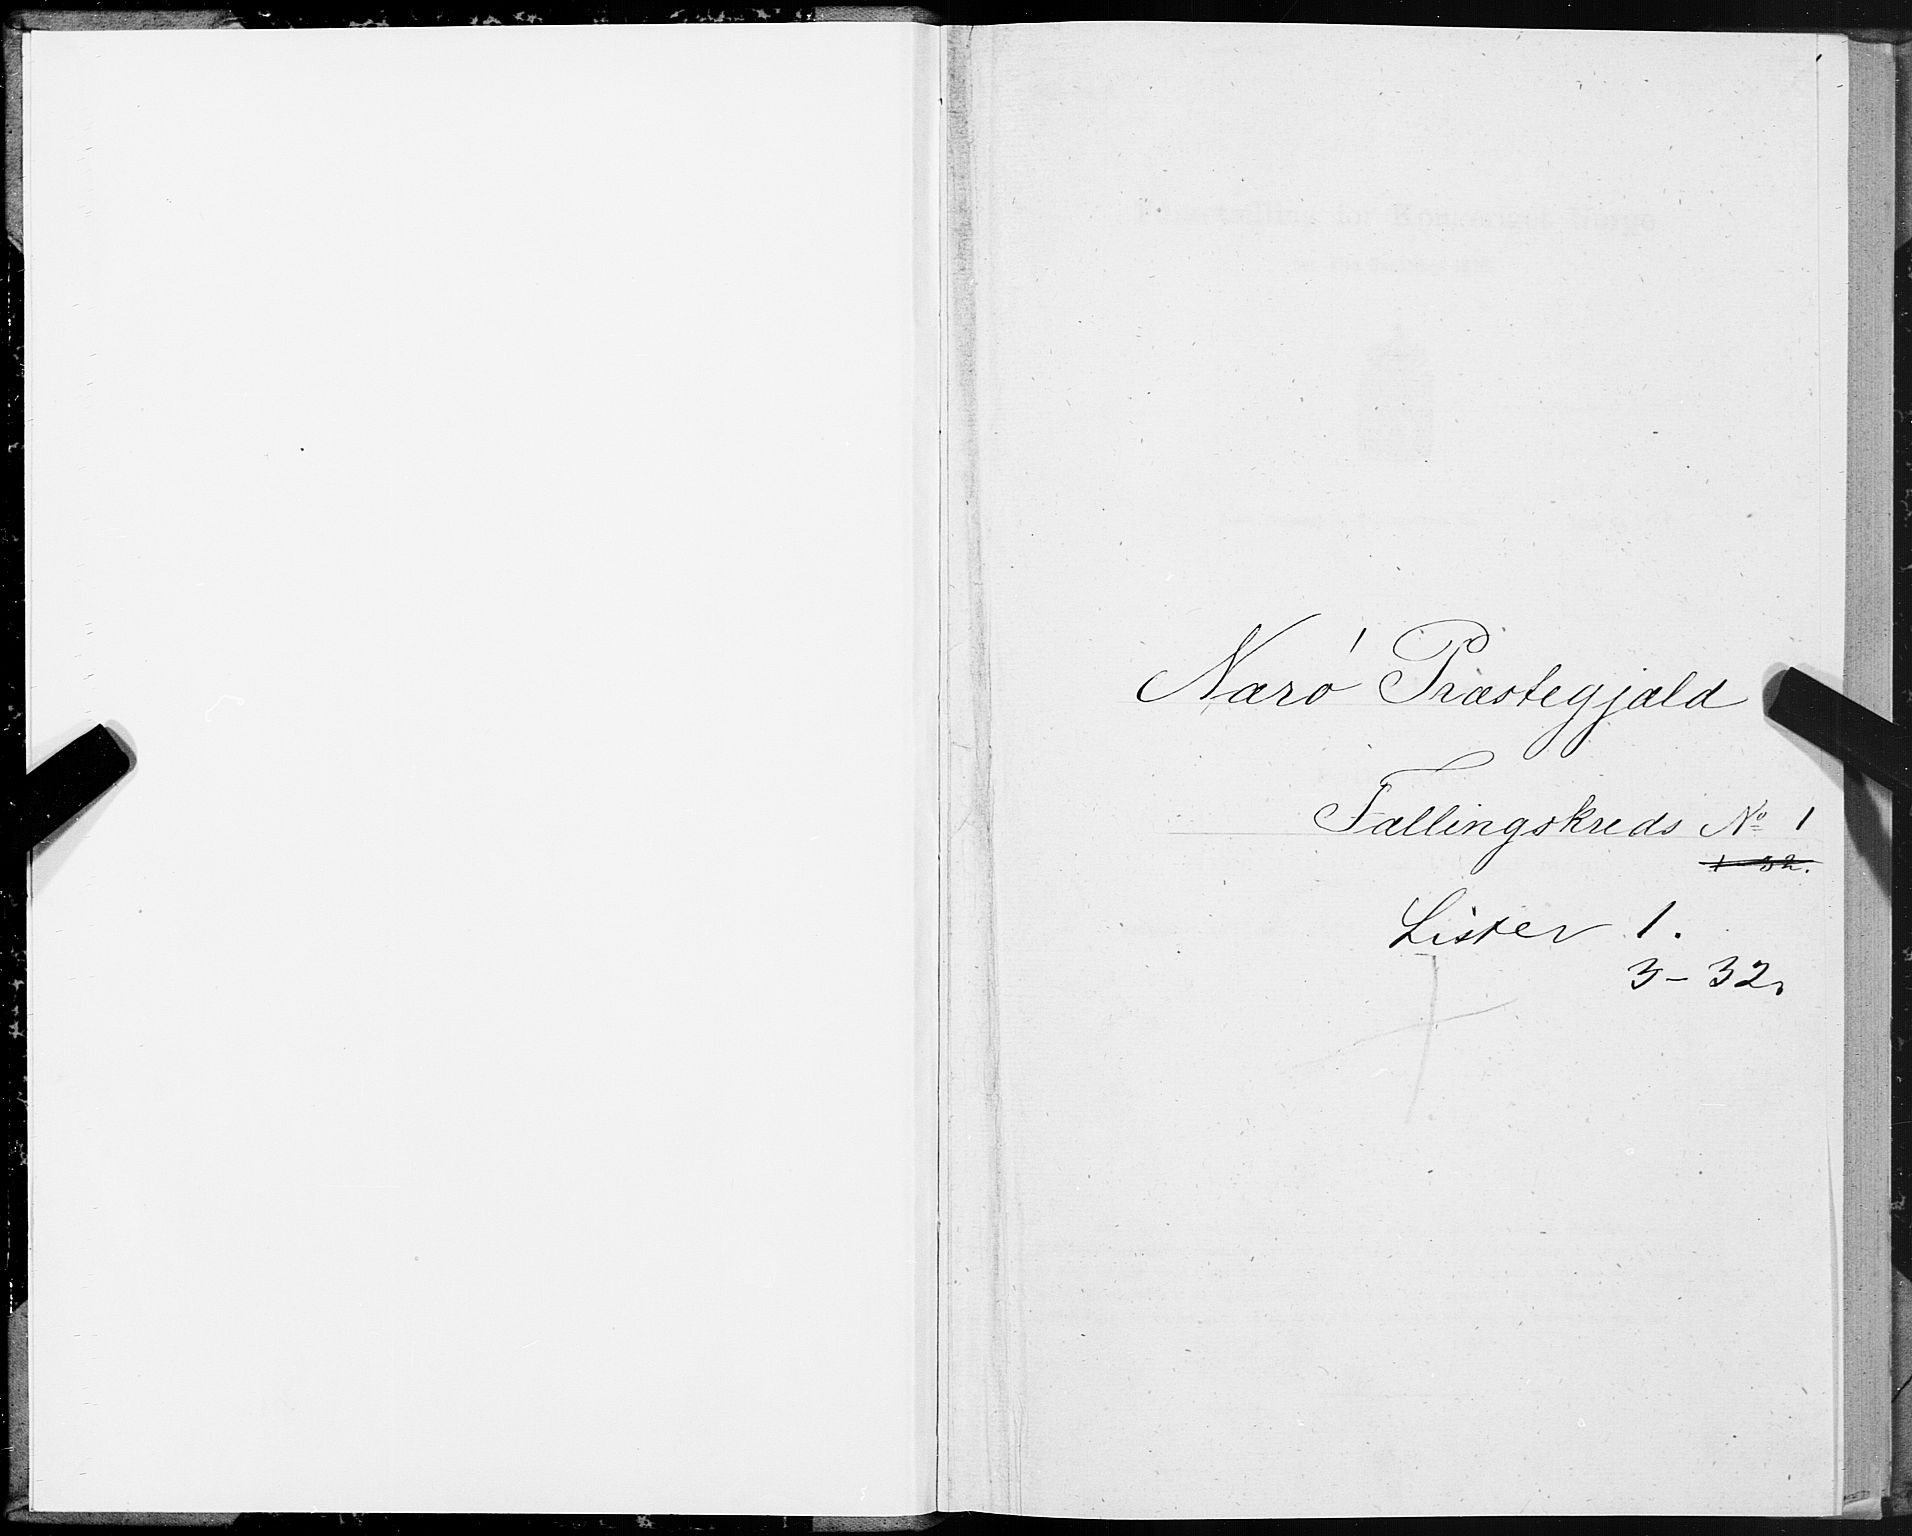 Nærö Præstegjæld
Tællingskreds No 1
1-32.
Lister 1.
3-32.